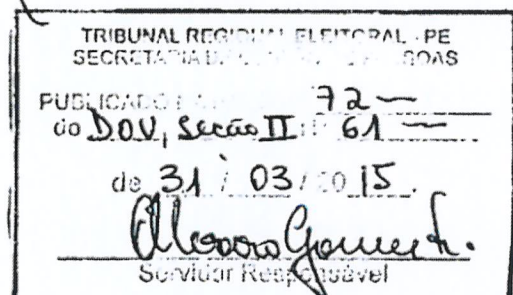 TRIBUNAL REGIONAL ELEITORAL - PE
SECRETARIA DE PESSOAS
PUBLICADO 72
do DOU, Secão II: 61
de 31 / 03 / 2015.
Servidor Responsável